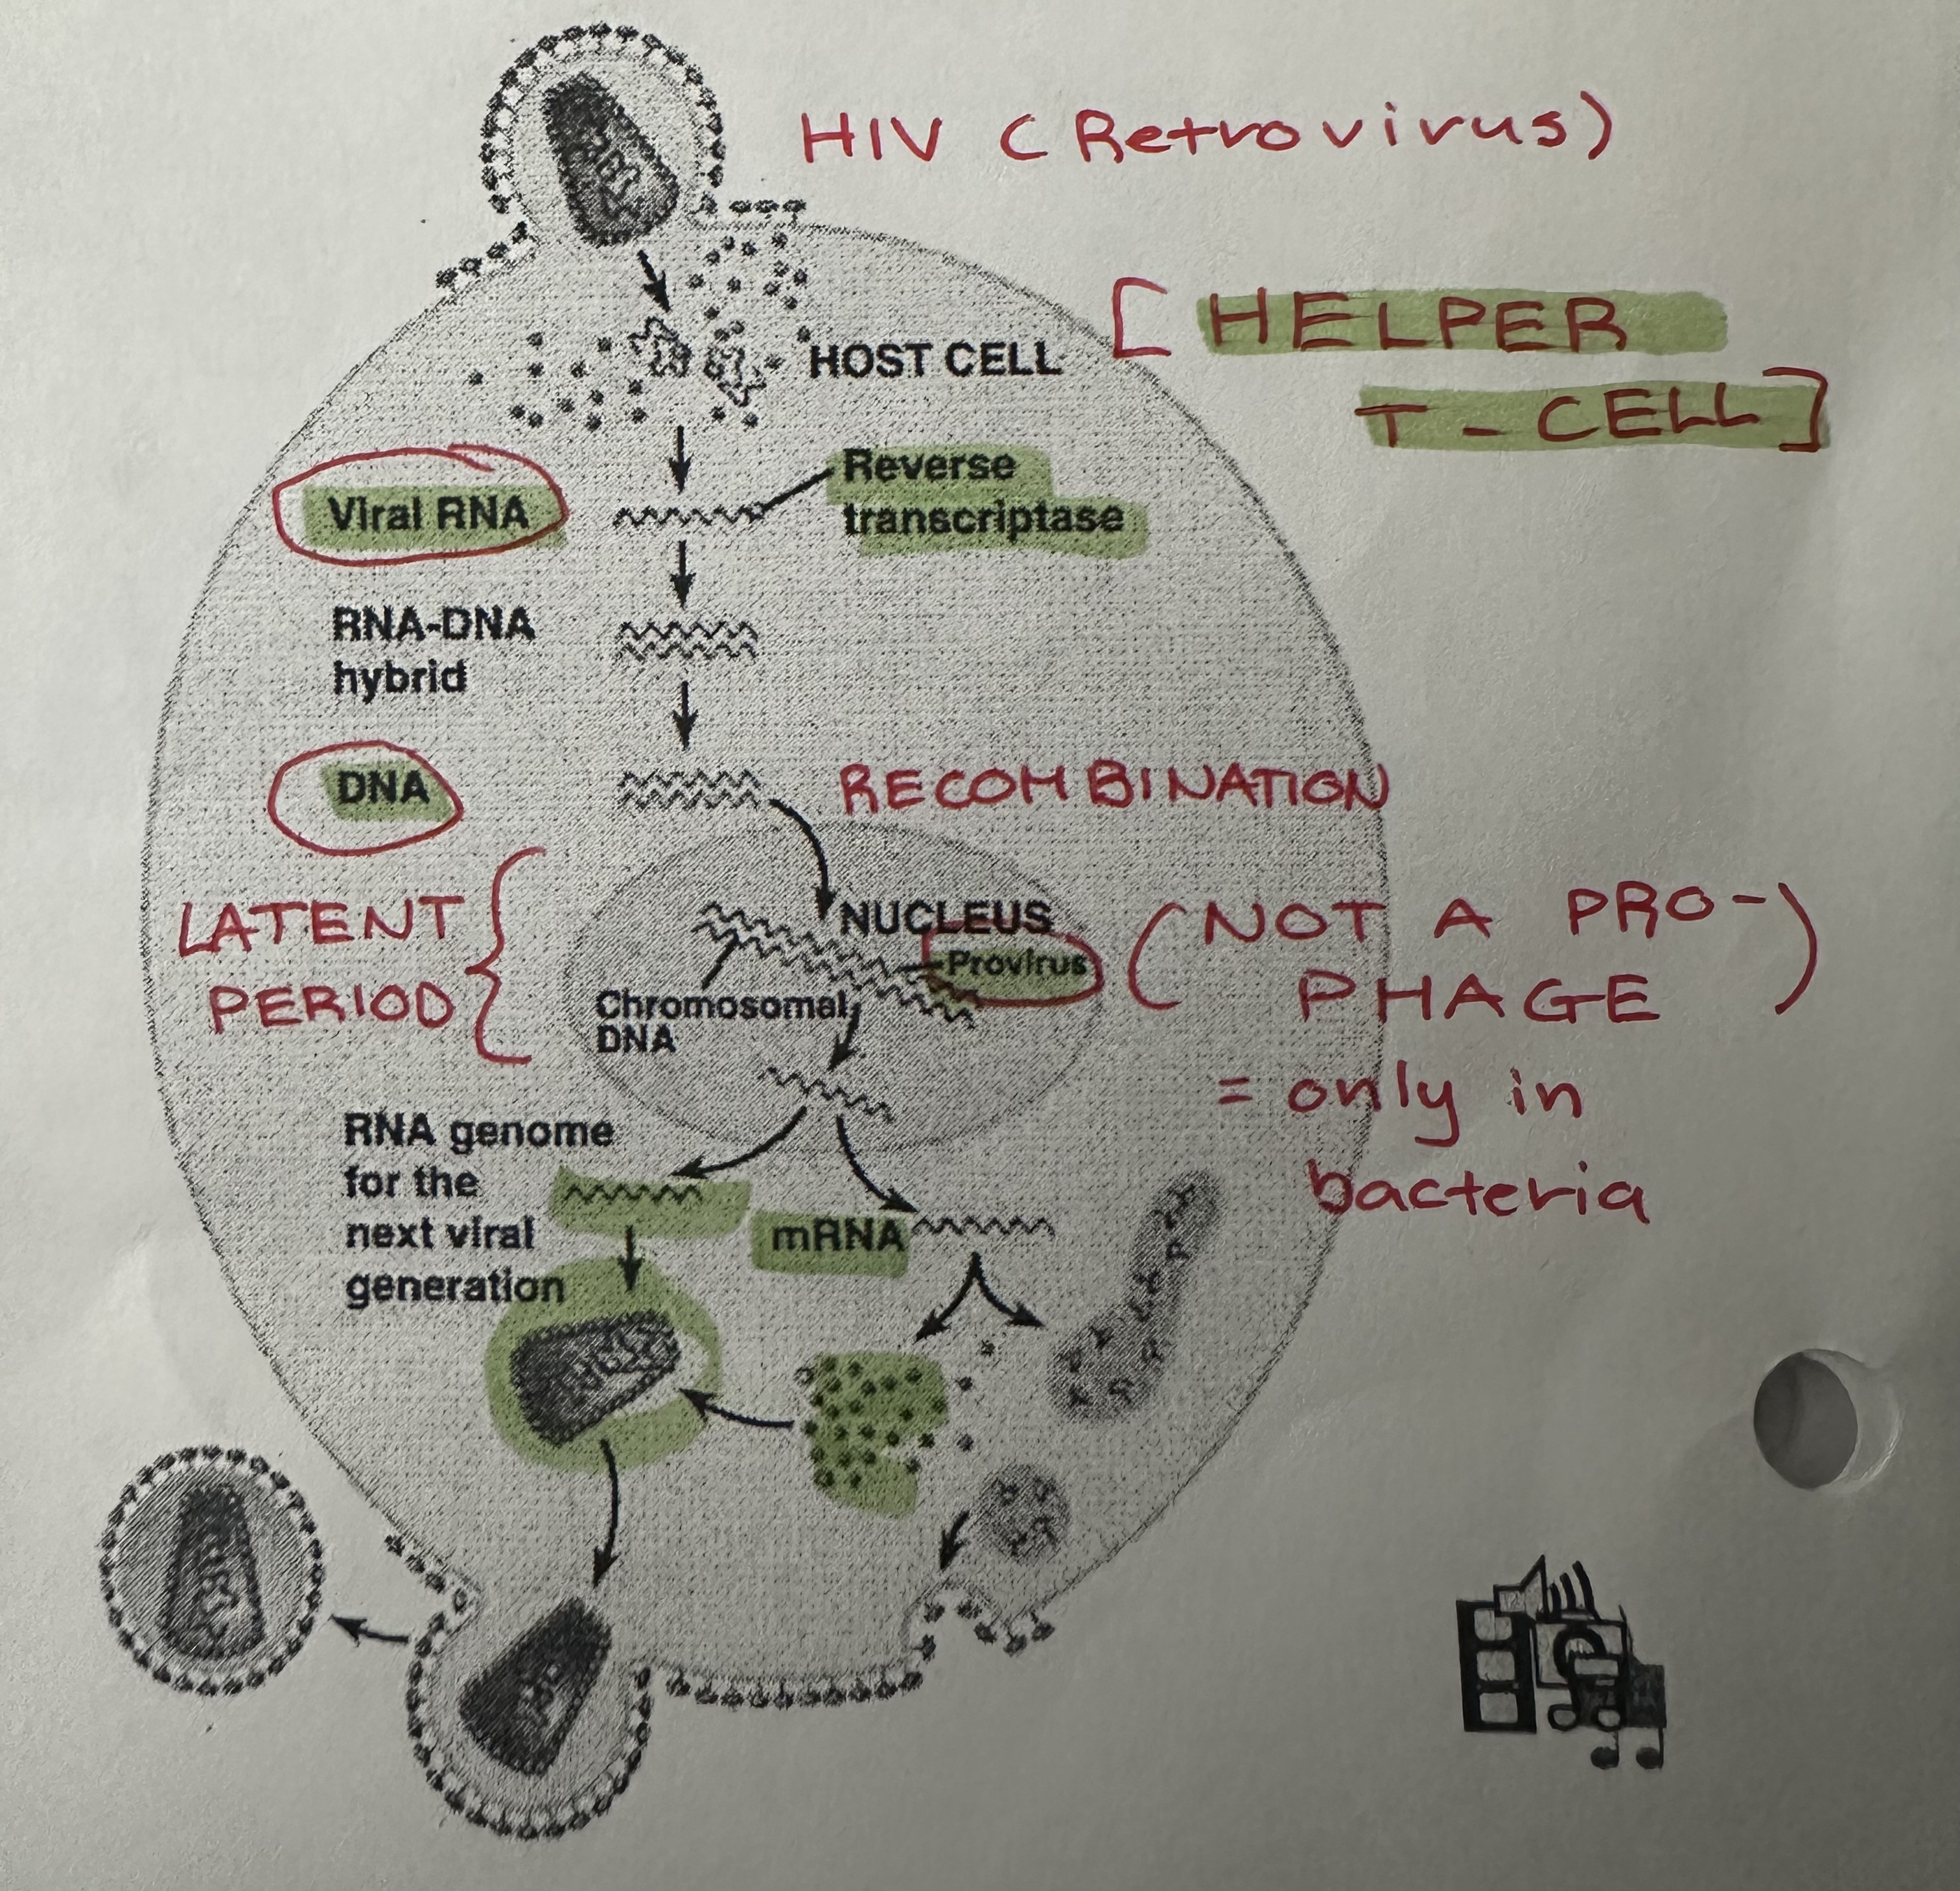 HIV (Retrovirus)
HOST CELL
[HELPER
T-CELL]
Viral RNA
Reverse
transcriptase
RNA-DNA
hybrid
DNA
RECOMBINATION
LATENT
PERIOD
NUCLEUS
Provirus
(NOT A PRO-
PHAGE)
= only in
bacteria
Chromosomal
DNA
RNA genome
for the
next viral
generation
mRNA